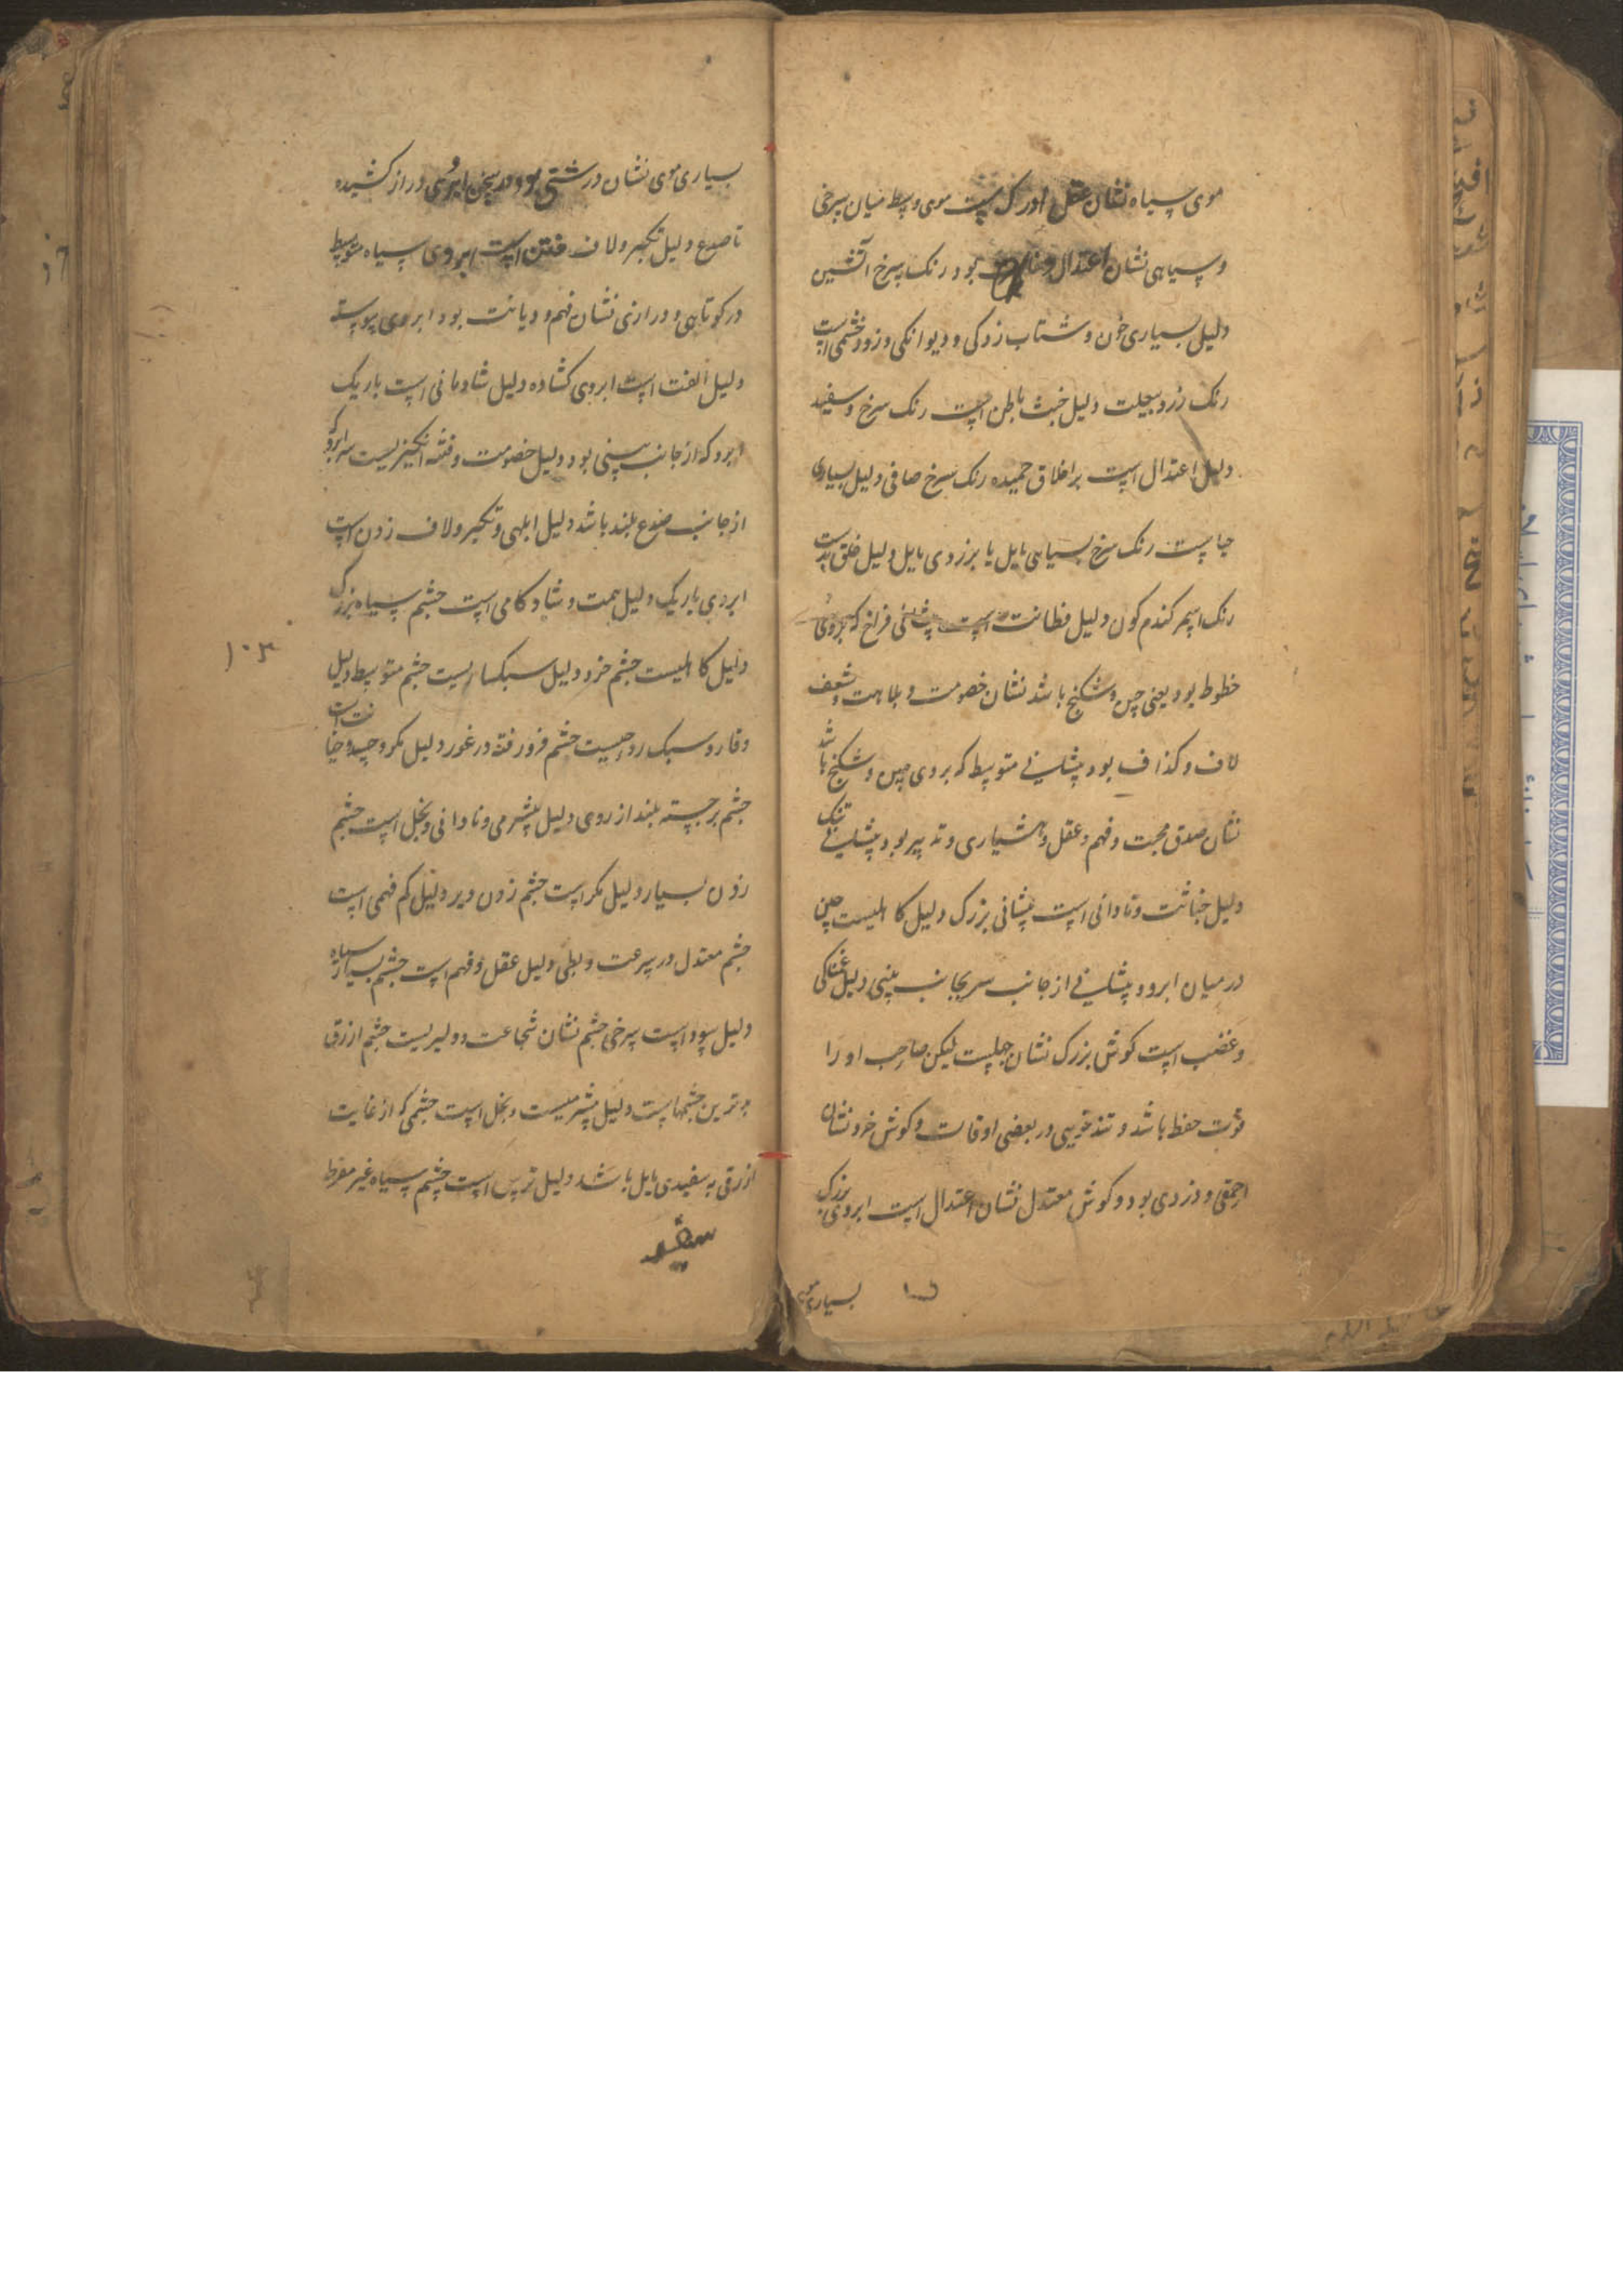 موی سیاه نشان عقل موی وسط میان سرخی
و سیاهی نشان اعتدال بود رنک سرخ آتشین
دلیل بسیاری خون و شتاب زدکی و دیوانکی و زود خشمی است
رنک زرد بیعلت دلیل خبث باطن است رنک سرخ و سفید
دلیل اعتدال است بر اخلاق حمیده رنک سرخ صافی دلیل بسیاری
حیاست رنک سرخ بسیاهی مایل یا بزردی مایل دلیل خلق بدست
رنک اسمر کندم کون دلیل فطانت است فراخ که بروی
خطوط بود یعنی چین و شکنج باشد نشان خصومت و بلاهت و شعف
لاف و کذاف بود پیشانی متوسط که بروی چین و شکنج باشد
نشان صدق محبت و فهم و عقل و هشیاری و تدبیر بود پیشانی تنک
دلیل خباثت و نادانی است پیشانی بزرک دلیل کاهلیست چین
در میان ابرو و پیشانی از جانب سر بجانب بینی دلیل غمناکی
و غضب است کوش بزرک نشان جهلست لیکن صاحب او را
قوت حفظ باشد و تندخویی در بعضی اوقات و کوش خرد نشان
احمقی و دزدی بود و کوش معتدل نشان اعتدال است ابروی بزرک
بسیاری موی
بسیاری موی نشان درشتی بود در سخن ابروی دراز کشیده
تا صدغ دلیل تکبر و لاف است ابروی سیاه متوسط
در کوتاهی و درازی نشان فهم و دیانت بود ابروی پیوسته
دلیل الفت است ابروی کشاده دلیل شادمانی است باریک
ابرو که از جانب بینی بود دلیل خصومت و فتنه انکیزیست
از جانب صدغ بلند باشد دلیل ابلهی و تکبر و لاف زدن است
ابروی باریک دلیل همت و شادکامی است چشم سیاه بزرک
دلیل کاهلیست چشم خرد دلیل سبکساریست چشم متوسط دلیل
وقار و سبک روحیست چشم فرو رفته در غور دلیل مکر و حیله و خیانت است
چشم برجسته بلند از روی دلیل بیشرمی و نادانی و بخل است چشم
زدن بسیار دلیل مکر است چشم زدن دیر دلیل کم فهمی است
چشم معتدل در سرعت و بطی دلیل عقل و فهم است چشم بسیار سیاه
دلیل سوداست سرخی چشم نشان شجاعت و دلیریست چشم ازرق
بدترین چشمهاست دلیل بیشرمیست و بخل است چشمی که از غایت
ازرقی به سفیدی مایل باشد دلیل ترس است چشم سیاه غیر مفرط
۱۰۳